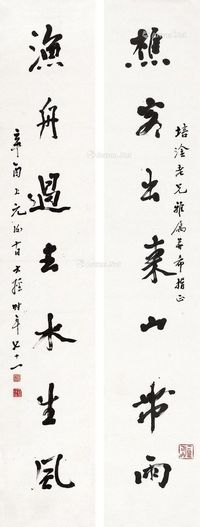 樵客出來山帶雨
培淦老兄雅屬并希指正
漁舟過去水生風
辛酉上元後十日 時年七十一